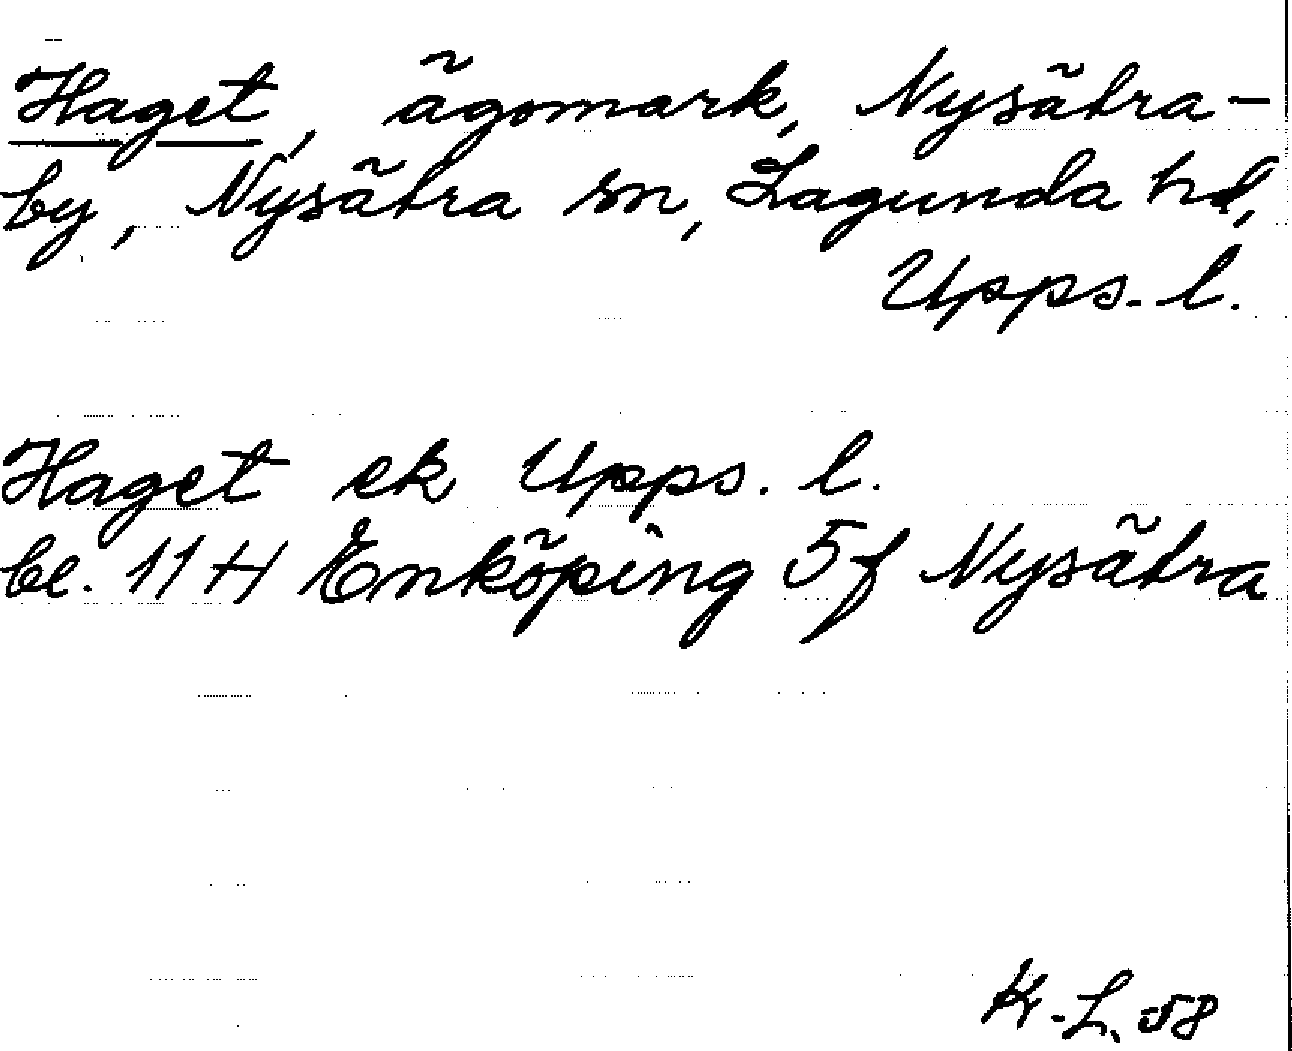 Haget, ägomark, Nysätra-
by, Nysätra sn, Lagunda hd,
Upps. l.
Haget ek Upps. l.
bl. 11 H Enköping 5f Nysätra
K.-L. 58